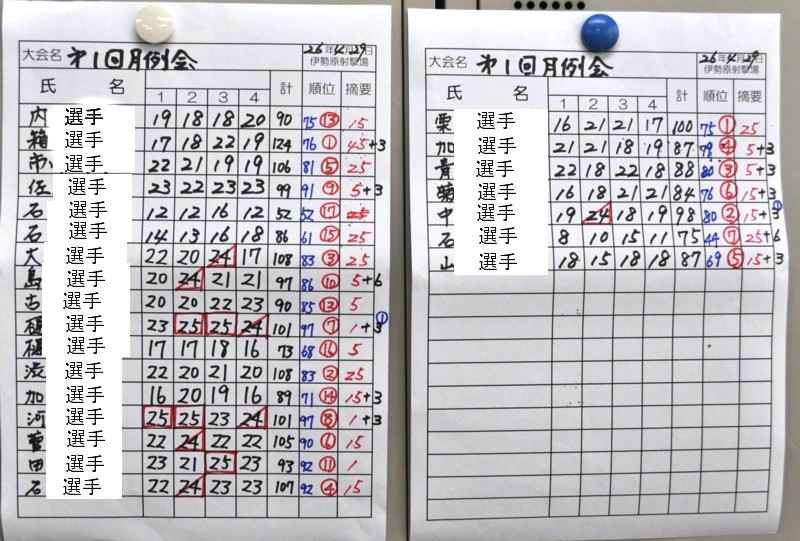 大会名 第1回月例会 26年4月29日
伊勢原射撃場
氏 名 1 2 3 4 計 順位 摘要
内 選手 19 18 18 20 90 75 ⑬ 15
箱 選手 17 18 22 19 124 76 ① 45+3
市 選手 22 21 19 19 106 81 ⑤ 25
佐 選手 23 22 23 23 99 91 ⑨ 5+3
石 選手 12 12 16 12 52 52 ⑰ 25
石 選手 14 13 16 18 86 61 ⑮ 25
大 選手 22 20 24 17 108 83 ③ 25
島 選手 20 24 21 21 97 86 ⑩ 5+6
古 選手 20 20 22 23 90 85 ⑫ 5
樋 選手 23 25 25 24 101 97 ⑦ 1+3 ①
樋 選手 17 17 18 16 73 68 ⑯ 5
渋 選手 22 20 21 20 108 83 ② 25
加 選手 16 20 19 16 89 71 ⑭ 15+3
河 選手 25 25 23 24 101 97 ⑧ 1+3
菅 選手 22 24 22 22 105 90 ⑥ 15
田 選手 23 21 25 23 93 92 ⑪ 1
石 選手 22 24 23 23 107 92 ④ 15
大会名 第1回月例会 26年4月29日
伊勢原射撃場
氏 名 1 2 3 4 計 順位 摘要
栗 選手 16 21 21 17 100 75 ① 25
加 選手 21 21 18 19 87 79 ④ 5+3
青 選手 22 18 22 18 88 80 ③ 5+3
菊 選手 16 18 21 21 84 76 ⑥ 15+3
中 選手 19 24 18 19 98 80 ② 15+3 ①
石 選手 8 10 15 11 75 44 ⑦ 25+6
山 選手 18 15 18 18 87 69 ⑤ 15+3